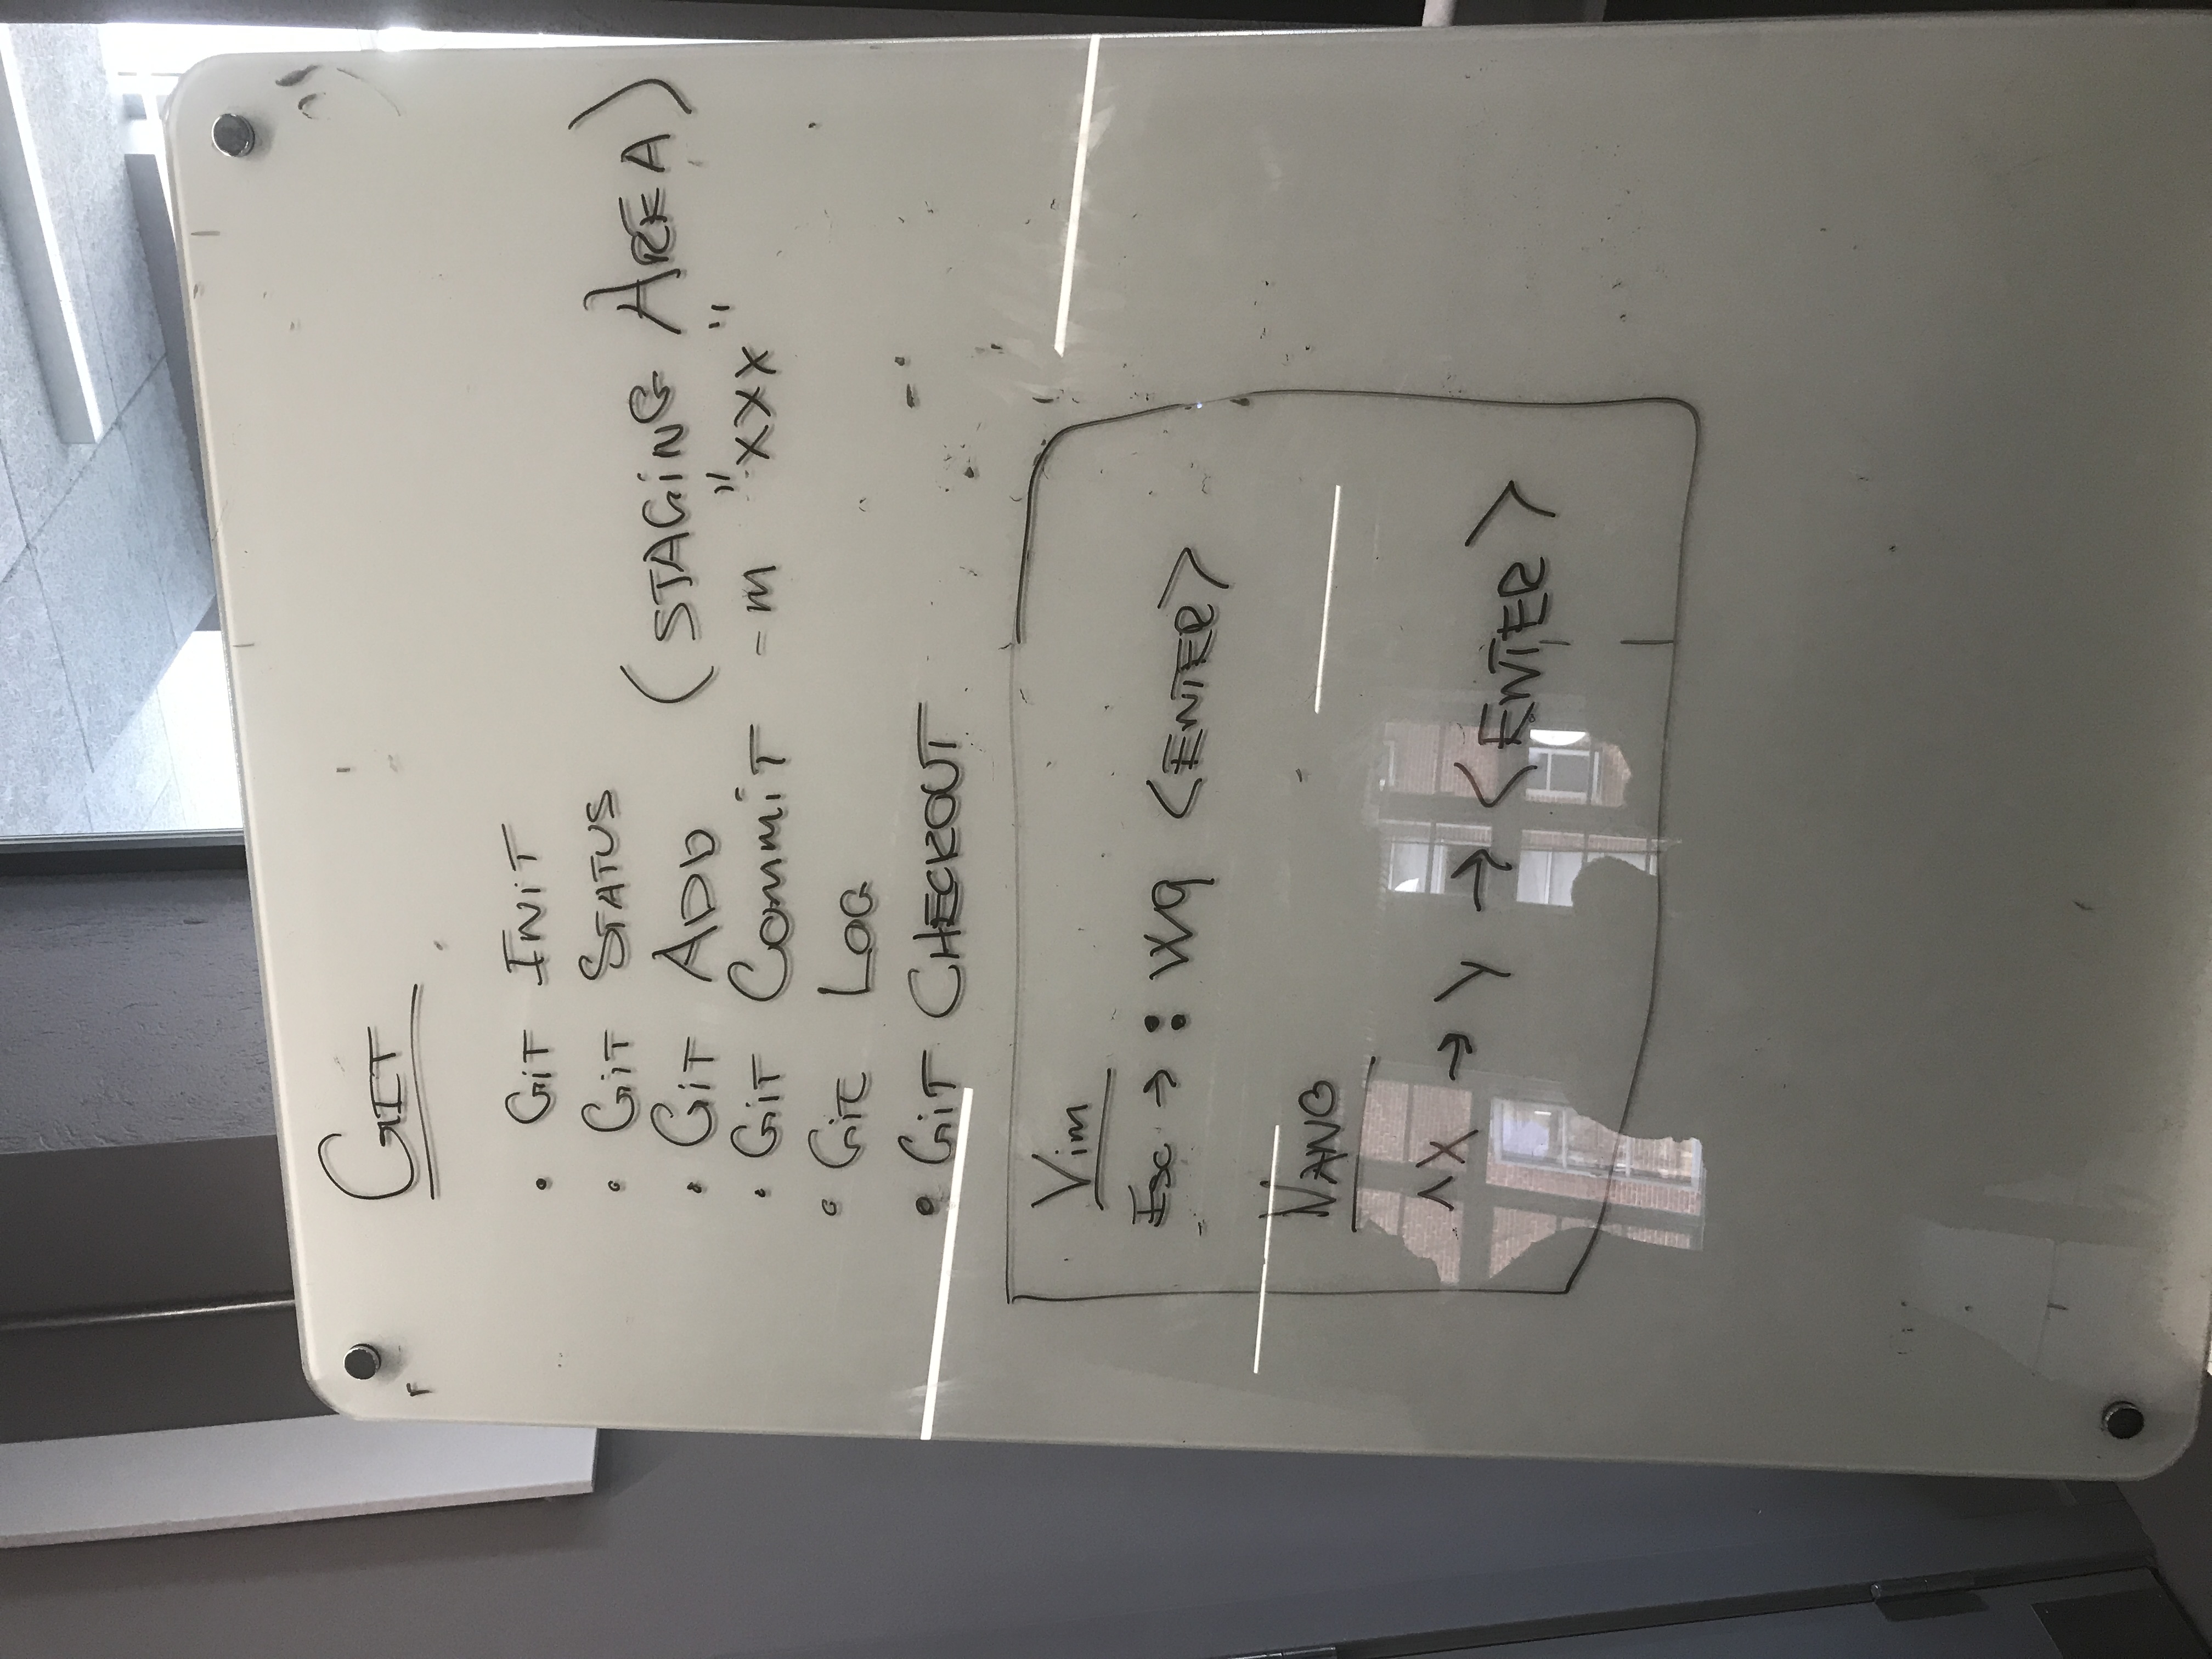 GIT
• GiT INiT
• GiT STATUS
• GiT ADD (STAGiNG AREA)
• GiT COMMiT -m "XXX"
• GiT LOG
• GiT CHECKOUT
Vim
Esc → : wq <ENTER>
NANO
^X → Y → <ENTER>